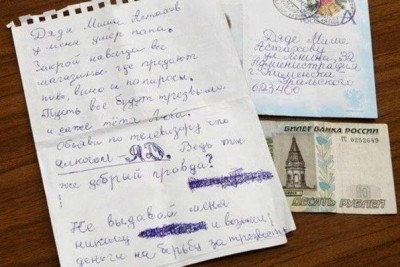 Дядя Миша Астахов
у меня умер папа.
Закрой навсегда все
магазины где продают
пиво, вино и папиросы.
Пусть все будут трезвыми
и даже тётя Лена.
Объяви по телевизору что
алкоголь – ЯД. Ведь ты
же добрый правда?
Не выдавай меня
никому и возьми
деньги на борьбу за трезвость
Дяде Мише
Астахову
ул Ленина, 32
Администрация
г. Каменска
Уральского
623400
БИЛЕТ БАНКА РОССИИ
ДЕСЯТЬ РУБЛЕЙ